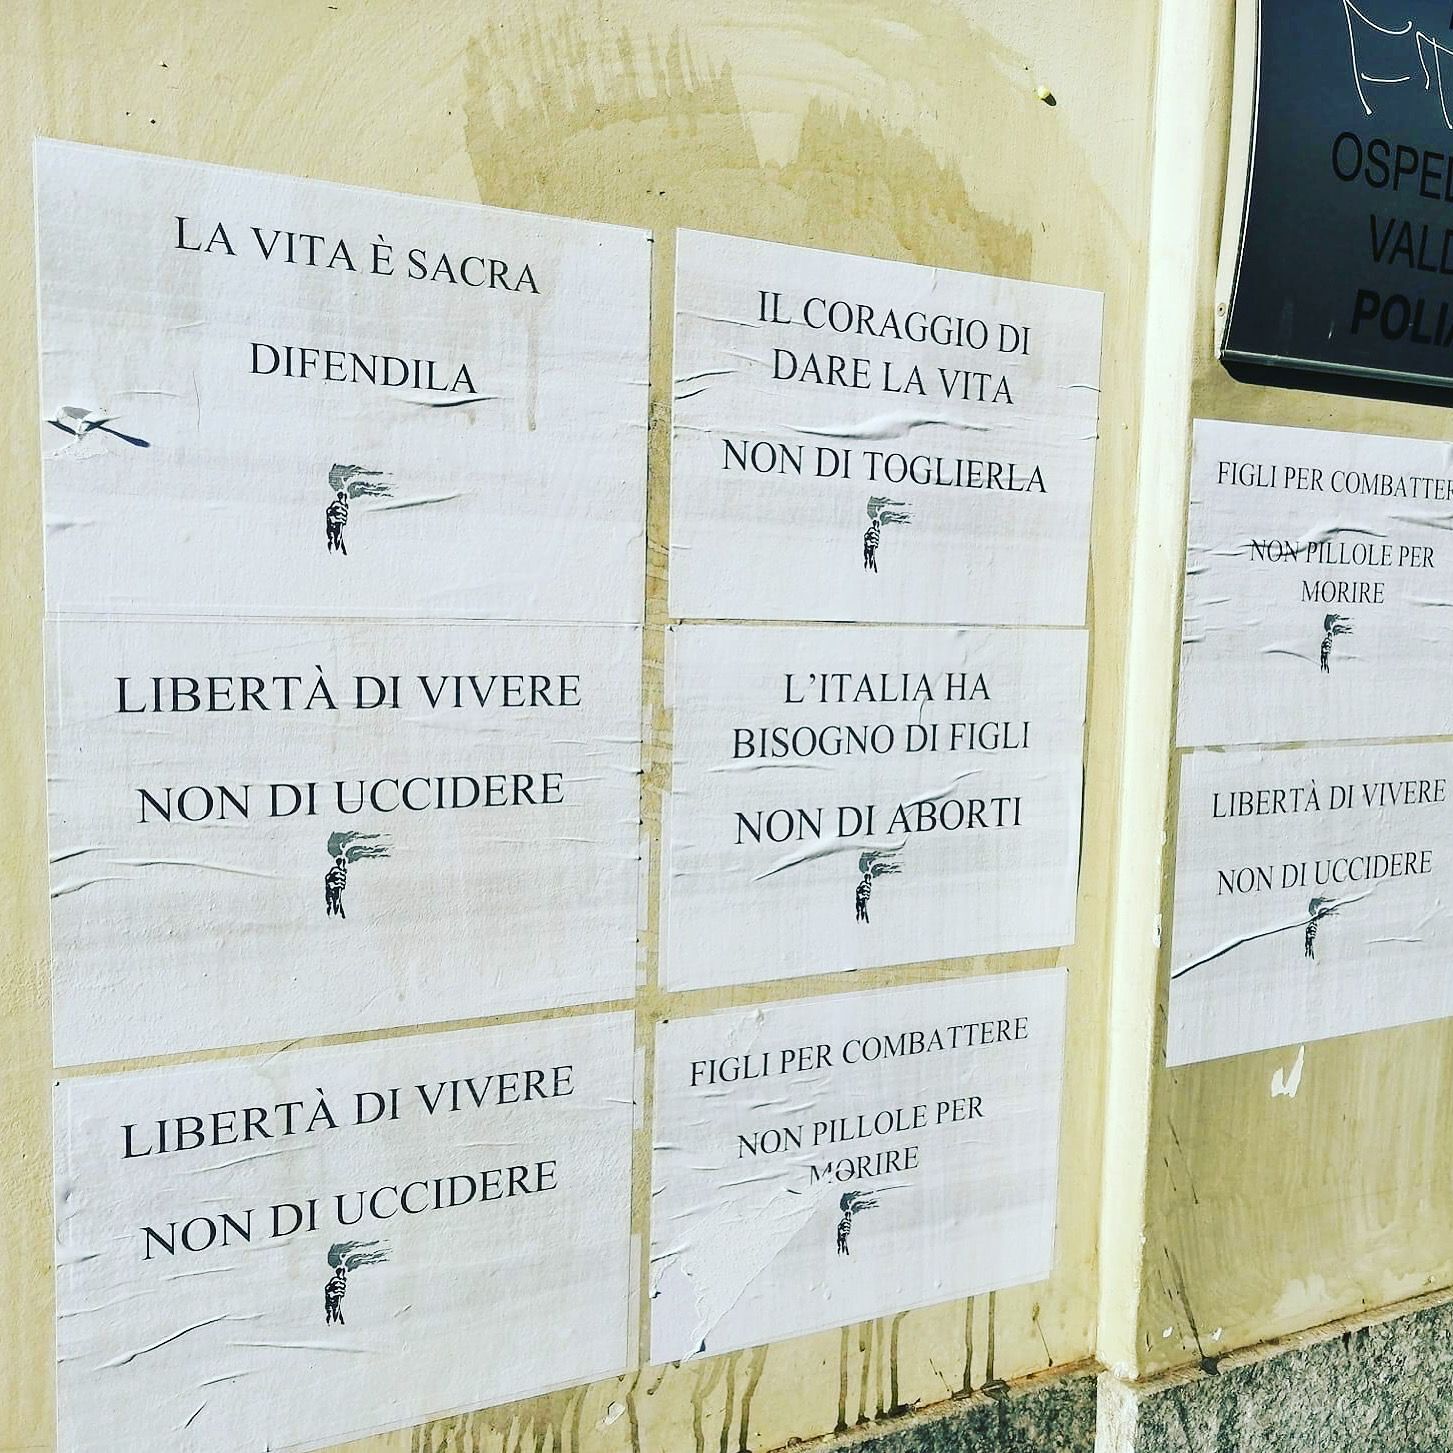 LA VITA È SACRA
DIFENDILA
LIBERTÀ DI VIVERE
NON DI UCCIDERE
LIBERTÀ DI VIVERE
NON DI UCCIDERE
IL CORAGGIO DI
DARE LA VITA
NON DI TOGLIERLA
L'ITALIA HA
BISOGNO DI FIGLI
NON DI ABORTI
FIGLI PER COMBATTERE
NON PILLOLE PER
MORIRE
FIGLI PER COMBATTERE
NON PILLOLE PER
MORIRE
LIBERTÀ DI VIVERE
NON DI UCCIDERE